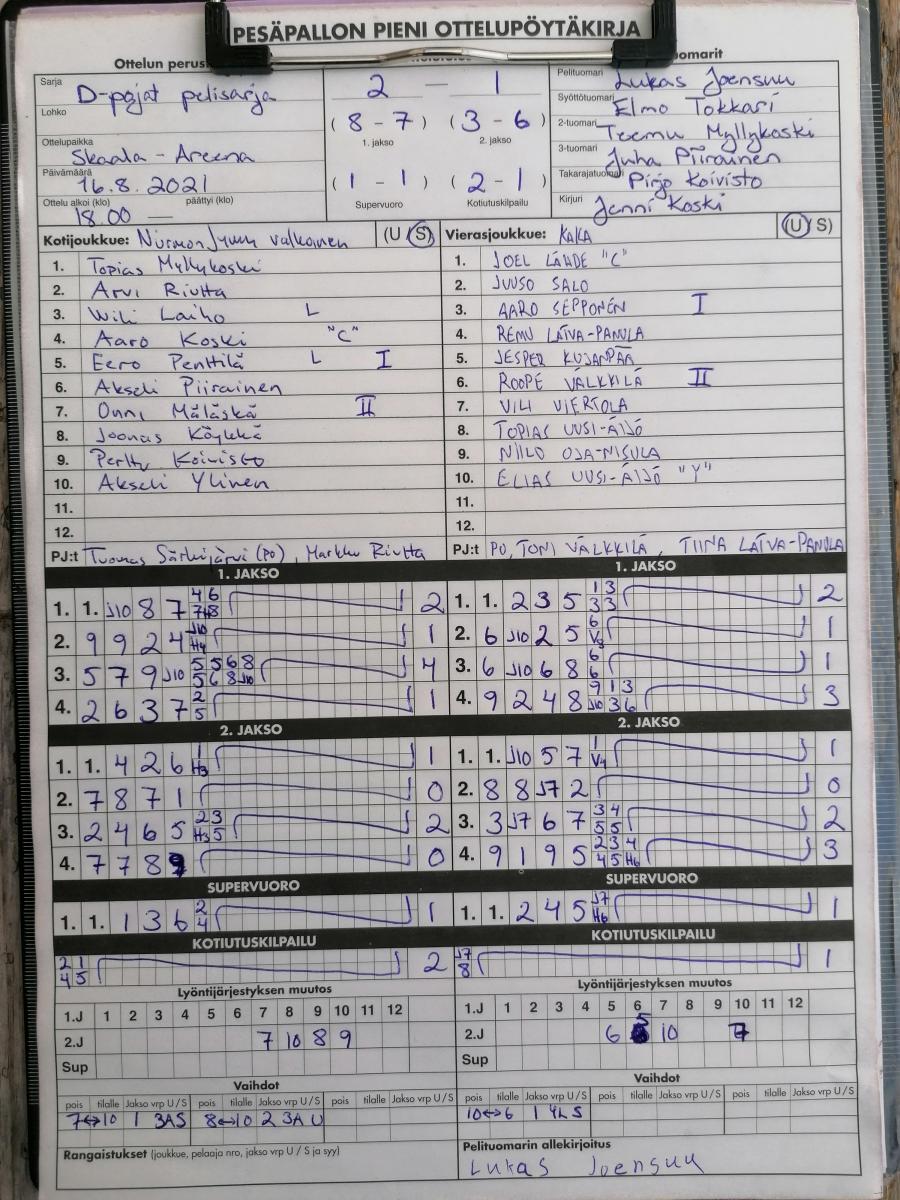 PESÄPALLON PIENI OTTELUPÖYTÄKIRJA
Ottelun perus
Sarja D-pojat pelisarja
Lohko
Ottelupaikka Skaala - Areena
Päivämäärä 16.8.2021
Ottelu alkoi (klo) 18.00 — päättyi (klo)
2 — 1
( 8 - 7 ) ( 3 - 6 )
1. jakso 2. jakso
( 1 - 1 ) ( 2 - 1 )
Supervuoro Kotiutuskilpailu
Pelituomari Lukas Joensuu
Syöttötuomari Elmo Tokkari
2-tuomari Teemu Myllykoski
3-tuomari Juha Piirainen
Takarajatuomari Pirjo Koivisto
Kirjuri Jenni Koski
Kotijoukkue: Nurmon Jymy valkoinen (U S)
1. Topias Myllykoski
2. Arvi Riutta
3. Wili Laiho L
4. Aaro Koski "C"
5. Eero Penttilä L I
6. Akseli Piirainen
7. Onni Mäläskä II
8. Joonas Köykkä
9. Perttu Koivisto
10. Akseli Ylinen
11.
12.
PJ:t Tuomas Särkijärvi (po), Markku Riutta
Vierasjoukkue: KAKA (U S)
1. JOEL LÄHDE "C"
2. JUUSO SALO
3. AARO SEPPONEN I
4. REMU LATVA-PANULA
5. JESPER KUJANPÄÄ
6. ROOPE VÄLKKILÄ II
7. VILI VIERTOLA
8. TOPIAS UUSI-ÄIJÖ
9. NIILO OJA-NISULA
10. ELIAS UUSI-ÄIJÖ "Y"
11.
12.
PJ:t PO, TONI VÄLKKILÄ, TIINA LATVA-PANULA
1. JAKSO
1. 1. J10 8 7 4 6 7 H8 2
2. 9 9 2 4 J10 H4 1
3. 5 7 9 J10 5 5 6 8 5 6 8 J10 4
4. 2 6 3 7 2 5 1
2. JAKSO
1. 1. 4 2 6 1 H3 1
2. 7 8 7 1 0
3. 2 4 6 5 2 3 H3 5 2
4. 7 7 8 9 0
SUPERVUORO
1. 1. 1 3 6 2 4 1
KOTIUTUSKILPAILU
2 1 4 5 2
Lyöntijärjestyksen muutos
1.J 1 2 3 4 5 6 7 8 9 10 11 12
2.J 7 10 8 9
Sup
Vaihdot
pois tilalle Jakso vrp U / S pois tilalle Jakso vrp U / S pois tilalle Jakso vrp U / S
7↔10 1 3AS 8↔10 2 3A U
Rangaistukset (joukkue, pelaaja nro, jakso vrp U / S ja syy)
1. JAKSO
1. 1. 2 3 5 1 3 3 3 2
2. 6 J10 2 5 6 V3 1
3. 6 J10 6 8 6 6 1
4. 9 2 4 8 9 1 3 J10 3 6 3
2. JAKSO
1. 1. J10 5 7 1 V4 1
2. 8 8 J7 2 0
3. 3 J7 6 7 3 4 5 5 2
4. 9 1 9 5 2 3 4 4 5 H6 3
SUPERVUORO
1. 1. 2 4 5 J7 H6 1
KOTIUTUSKILPAILU
J7 8 1
Lyöntijärjestyksen muutos
1.J 1 2 3 4 5 6 7 8 9 10 11 12
2.J 6 5 10 7
Sup
Vaihdot
pois tilalle Jakso vrp U / S pois tilalle Jakso vrp U / S pois tilalle Jakso vrp U / S
10↔6 1 4L S
Pelituomarin allekirjoitus
Lukas Joensuu